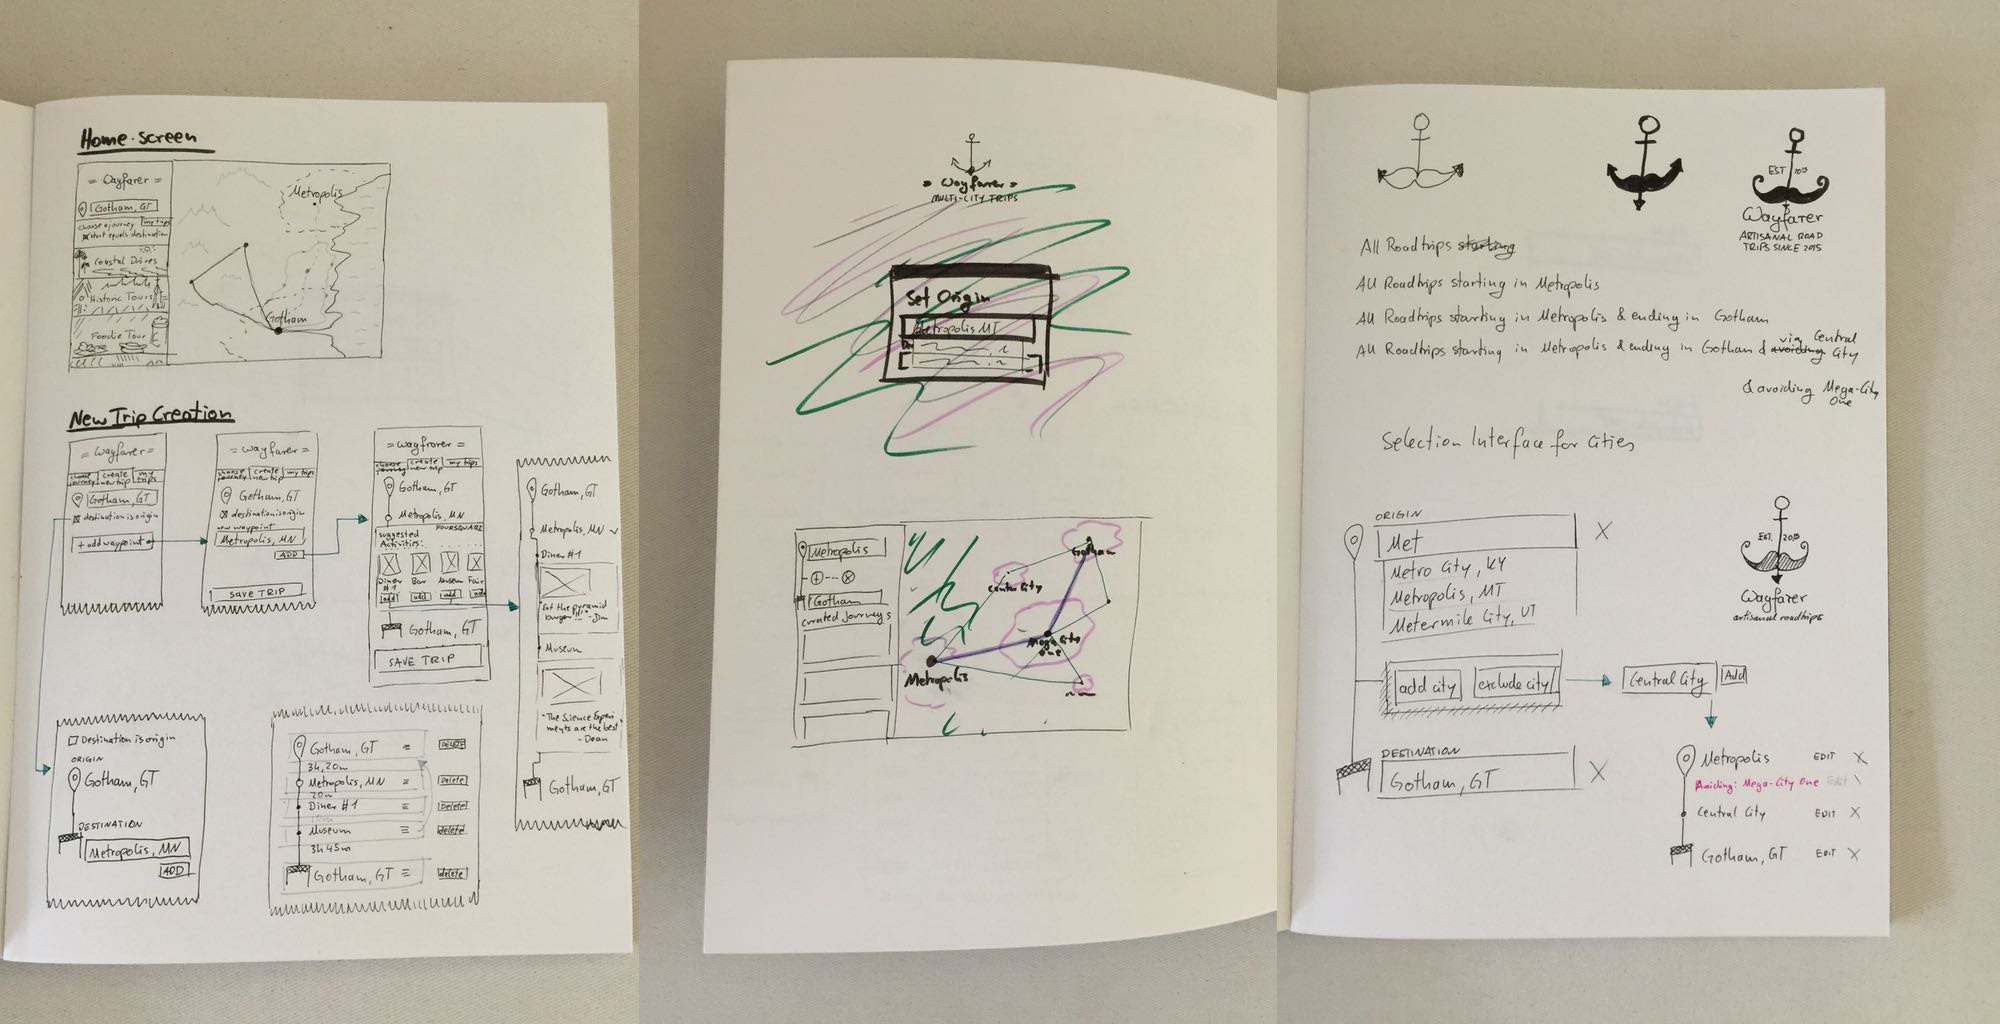 Home-screen
= Wayfarer =
Gotham, GT
choose a journey
my trips
start equals destination
Coastal Drives
Historic Tours
Foodie Tour
Metropolis
Gotham
New Trip Creation
= Wayfarer =
choose journey
create new trip
my trips
Gotham, GT
destination is origin
+ add waypoint
= wayfarer =
choose journey
create new trip
my trips
Gotham, GT
destination is origin
new waypoint
Metropolis, MN
ADD
save TRIP
= wayfrarer =
choose journey
create new trip
my trips
Gotham, GT
Metropolis, MN
FOURSQUARE
suggested
Activities:
Diner #1
Bar
Museum
Fair
add
add
add
add
Gotham, GT
SAVE TRIP
Gotham, GT
Metropolis, MN
Diner #1
Get the pyramid
burger!!!" - Jim
Museum
"The Science Experi-
ments are the best"
- Dean
Gotham, GT
Destination is origin
ORIGIN
Gotham, GT
DESTINATION
Metropolis, MN
ADD
Gotham, GT = DELETE
3h, 20m
Metropolis, MN = Delete
20m
Diner #1 = Delete
10m
Museum = delete
3h 45m
Gotham, GT = delete
= Wayfarer =
MULTI-CITY TRIPS
Set Origin
Metropolis MT
Metropolis
Gotham
curated journeys
Gotham
Center City
Mega City
one
Metropolis
EST 2015
Wayfarer
ARTISANAL ROAD
TRIPS SINCE 2015
All Roadtrips starting
All Roadtrips starting in Metropolis
All Roadtrips starting in Metropolis & ending in Gotham
All Roadtrips starting in Metropolis & ending in Gotham & avoiding via Central City
& avoiding Mega-City
One
Selection Interface for Cities
ORIGIN
Met X
Metro City, KY
Metropolis, MT
Metermile City, UT
EST. 2015
Wayfarer
artisanal roadtrips
add city
exclude city
Central City
Add
DESTINATION
Gotham, GT X
Metropolis EDIT X
Avoiding: Mega-City One Edit \
Central City EDIT X
Gotham, GT EDIT X